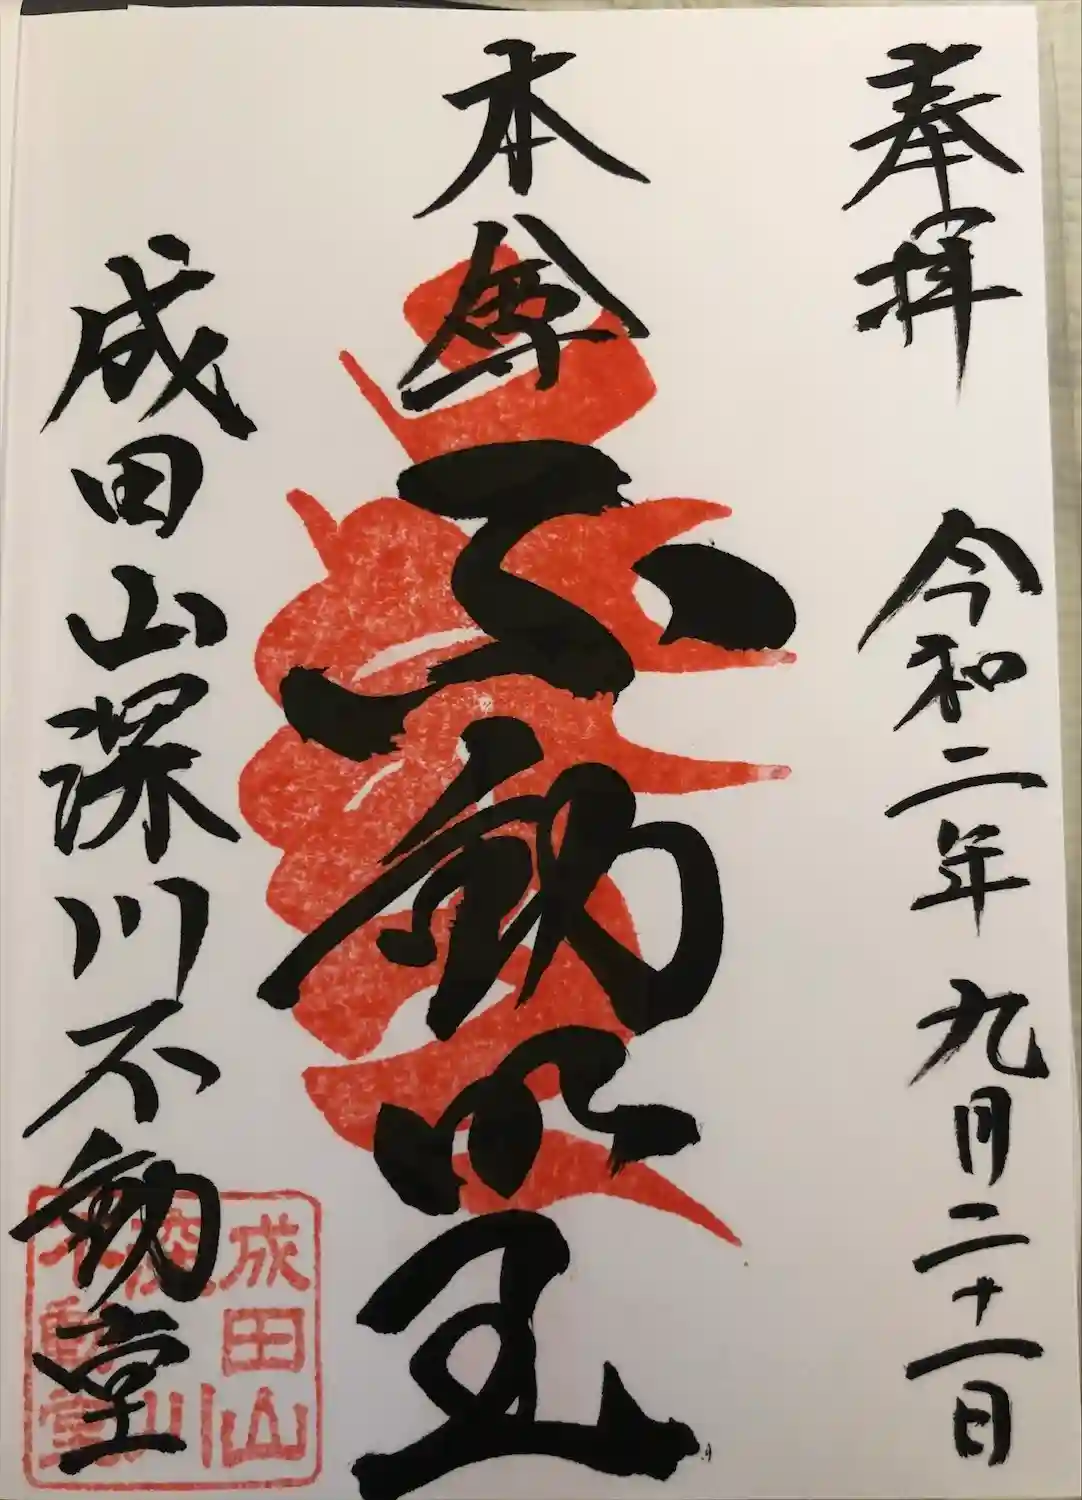 奉拝 令和二年九月二十一日
本尊
不動明王
成田山深川不動堂
成田山
深川
不動堂